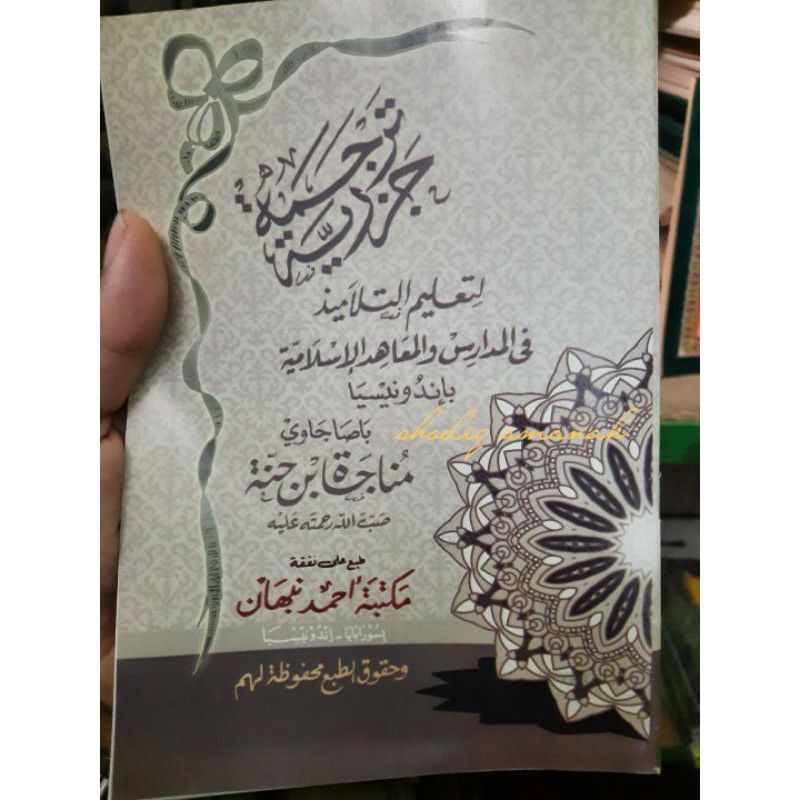 ترجمة
جزرية
لتعليم التلاميذ
في المدارس والمعاهد الإسلامية
بإندونيسيا
باصا جاوي
shodiq amanah
مناجاة ابن حنة
صبّ الله رحمته عليه
طبع على نفقة
مكتبة أحمد نبهان
سورابايا - إندونيسيا
وحقوق الطبع محفوظة لهم